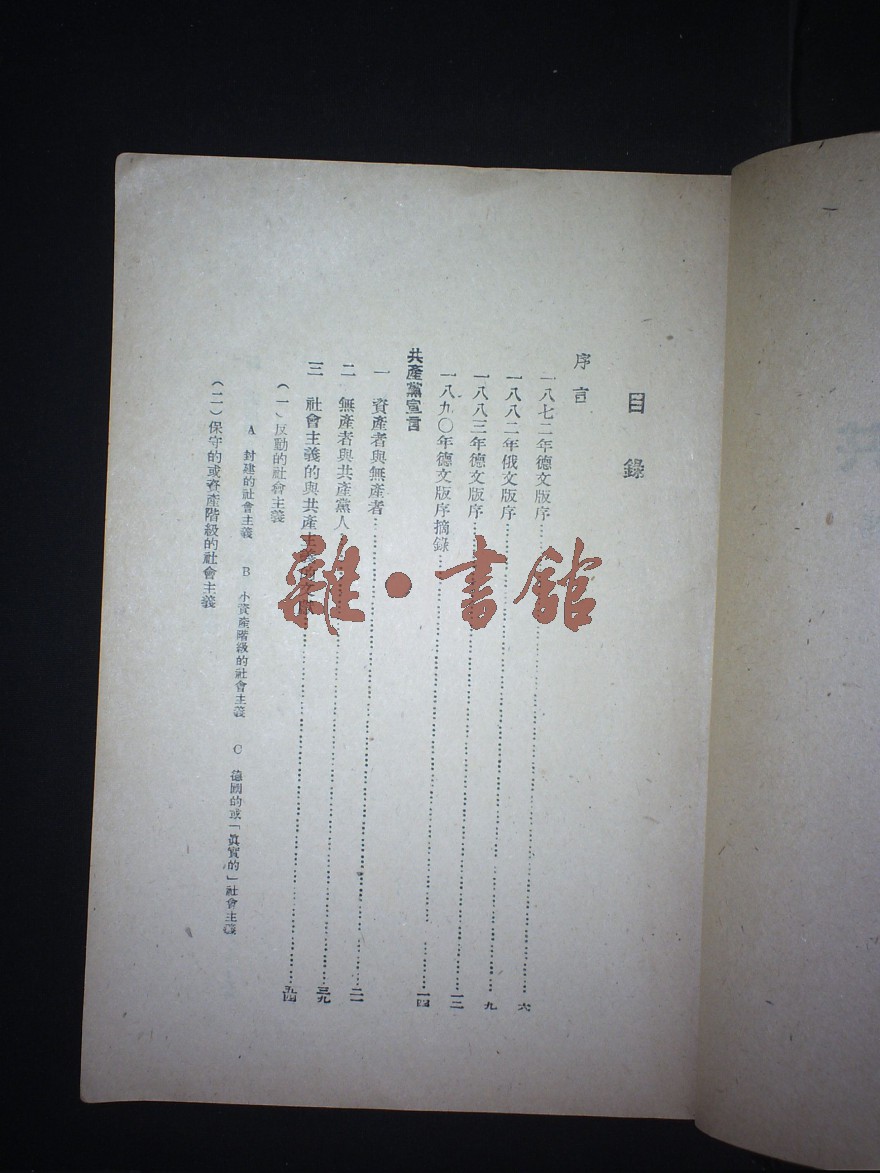 目錄
序言
一八七二年德文版序……六
一八八二年俄文版序……九
一八八三年德文版序……一二
一八九〇年德文版序摘錄……一四
共產黨宣言
一 資產者與無產者……二一
二 無產者與共產黨人……三九
三 社會主義的與共產主義的文獻……五四
(一)反動的社會主義
A 封建的社會主義 B 小資產階級的社會主義 C 德國的或「眞實的」社會主義
(二)保守的或資產階級的社會主義
雜·書館